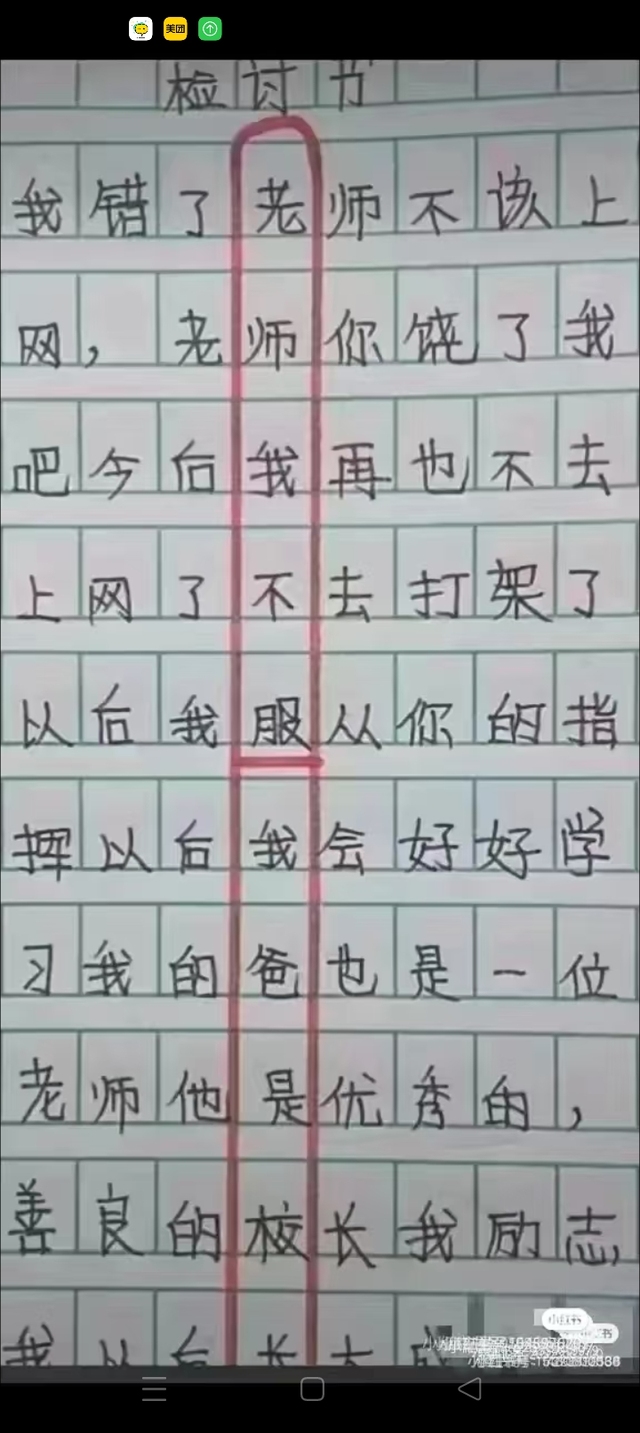 美团
检讨书
我错了老师不该上
网，老师你饶了我
吧今后我再也不去
上网了不去打架了
以后我服从你的指
挥以后我会好好学
习我的爸也是一位
老师他是优秀的，
善良的校长我励志
我以后长大
小红书